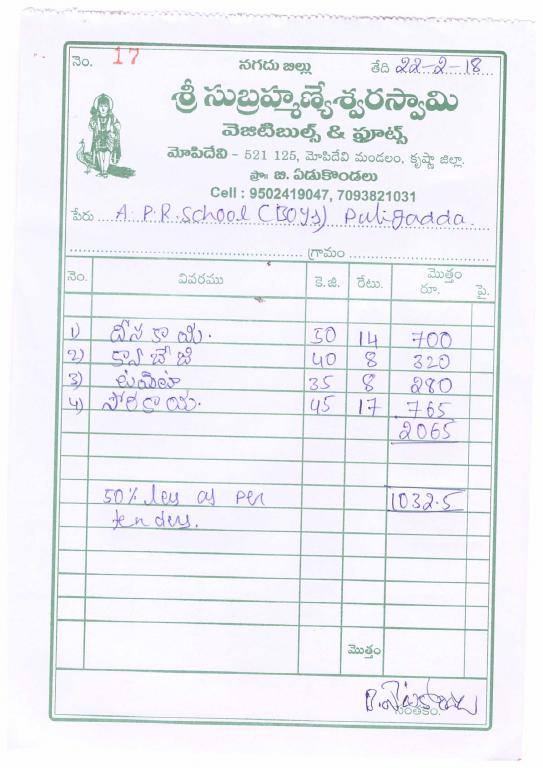 నెం. 17 నగదు బిల్లు తేది 22-2-18
శ్రీ సుబ్రహ్మణ్యేశ్వరస్వామి
వెజిటిబుల్స్ & ఫ్రూట్స్
మోపిదేవి - 521 125, మోపిదేవి మండలం, కృష్ణా జిల్లా.
ప్రొః బి. ఏడుకొండలు
Cell : 9502419047, 7093821031
పేరు A. P.R. School (BOYS) Puligadda.
గ్రామం
నెం. వివరము కె.జి. రేటు. మొత్తం రూ. పై.
1) దోసకాయ. 50 14 700
2) క్యాబేజి 40 8 320
3) టమోటా 35 8 280
4) సోరకాయ. 45 17 765
2065
50% les as per 1032.5
tenders.
మొత్తం
సంతకం.